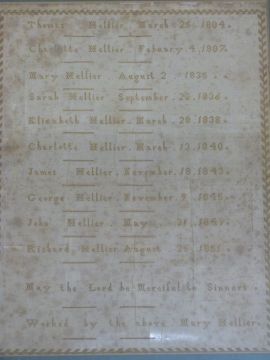 Thomas Hellier. March 25. 1804.
Charlotte Hellier. Febuary. 4. 1807.
Mary Hellier. August 2 . 1835 .
Sarah Hellier. September. 20. 1836.
Elizabeth Hellier. March. 20. 1838.
Charlotte Hellier. March. 13. 1840.
James Hellier. November. 18. 1843.
George Hellier. November. 9 . 1845.
John Hellier. May . 31. 1847.
Richard. Hellier August 25. 1851.
May the Lord be Merciful to Sinners.
Worked by the above Mary Hellier.